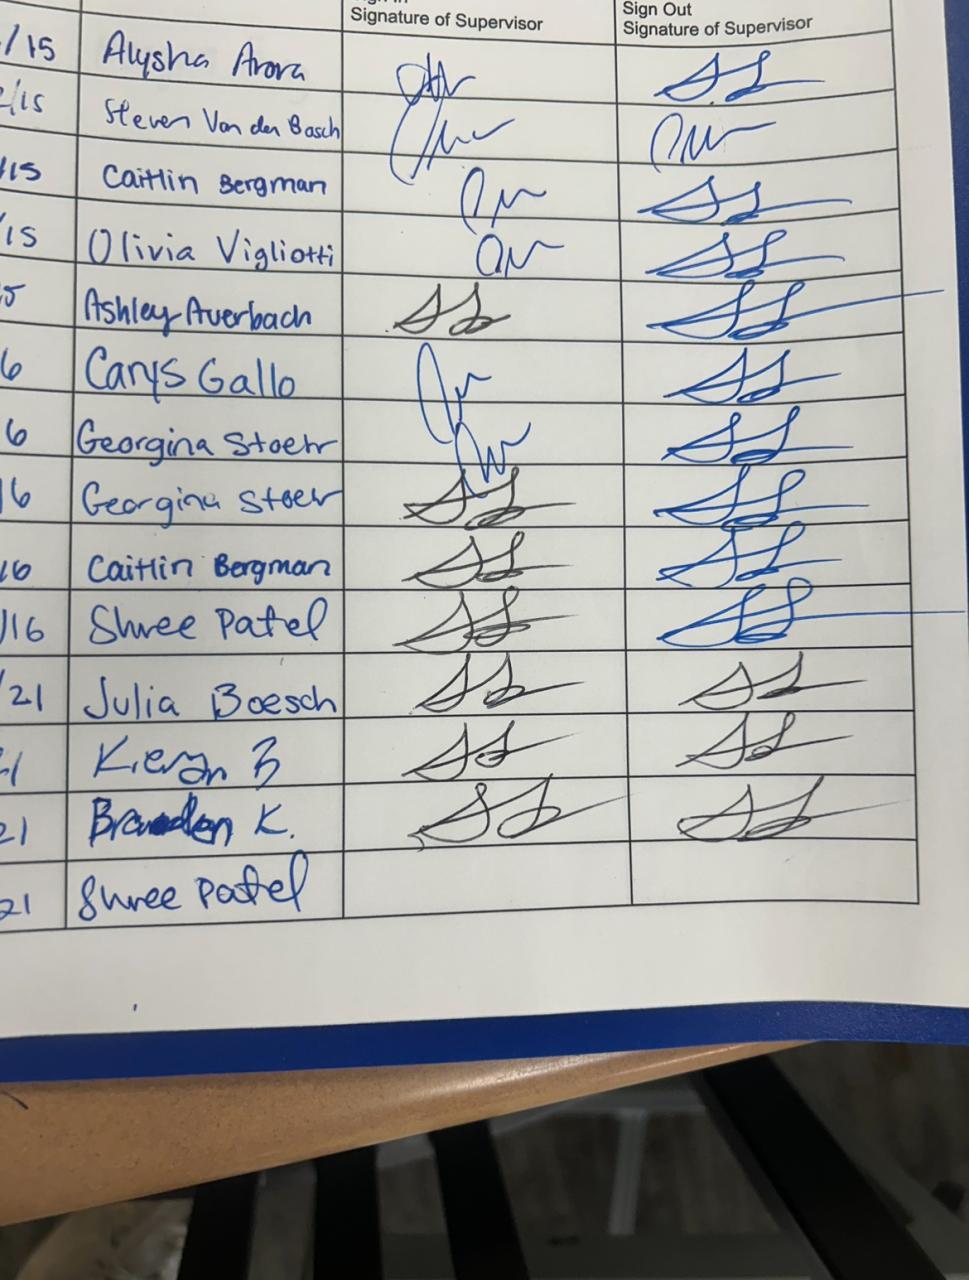 Signature of Supervisor
Sign Out
Signature of Supervisor
/15 Alysha Arora
/15 Steven Van den Bosch
/15 Caitlin Bergman
/15 Olivia Vigliotti
5 Ashley Averbach
6 Carys Gallo
6 Georgina Stoehr
16 Georgina Stoehr
16 Caitlin Bergman
/16 Shree Patel
/21 Julia Boesch
21 Kieran B
21 K.
21 Shree Patel